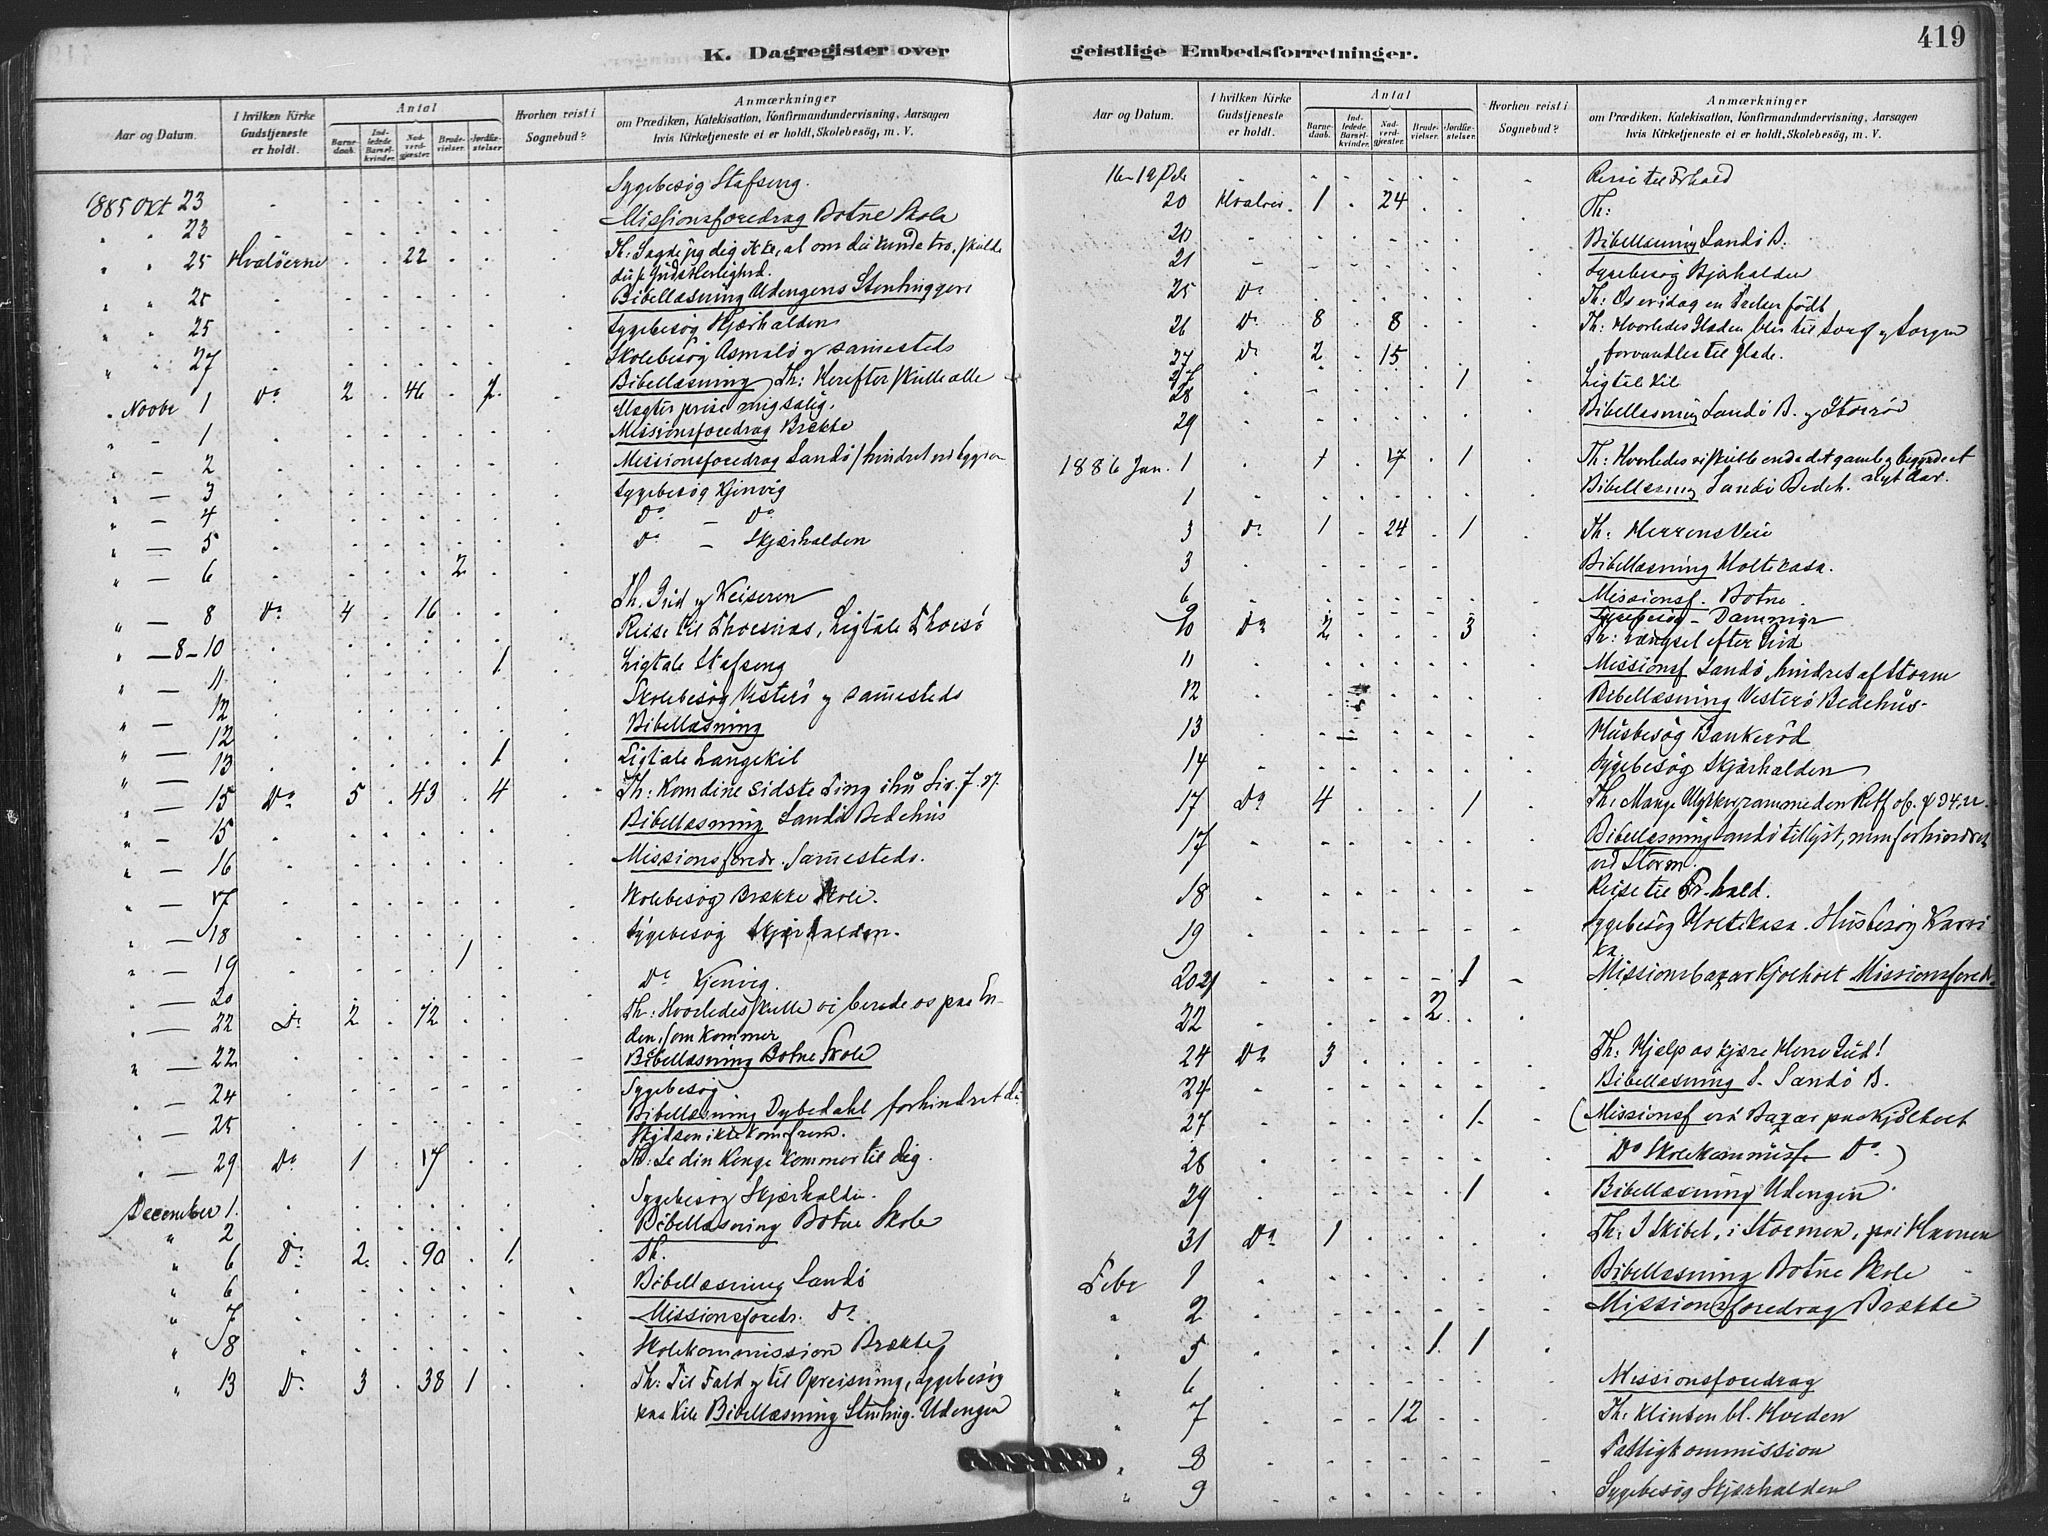 K. Dagregister over geistlige Embedsforretninger.
419
Aar og Datum.
I hvilken Kirke Gudstjeneste er holdt.
Antal
Barnedaab.
Indledede Barselkvinder.
Nadverdgjester.
Brudevielser.
Jordfæstelser
Hvorhen reist i Sognebud?
Anmærkninger
om Prædiken, Katekisation, Konfirmandundervisning, Aarsagen
hvis Kirketjeneste ei er holdt, Skolebesøg, m. V.
1885 Okt 23 Sygebesøg Stafseng.
" " 23 Missionsforedrag Botne Skole
" " 25 Hvaløerne 22 Th: Sagde jeg dig ikke, at om du kunde tro, skulde
du se Guds Herlighed.
" " 25 Bibellæsning Udengens Stenhuggeri
" " 25 Sygebesøg Skjærhalden
" " 27 Skolebesøg Asmalø og samesteds
" Novbr 1 Do 2 46 2 Bibellæsning Th: Herefter skulle alle
Slægter prise mig salig.
" - 1 Missionsforedrag Brække
" - 2 Missionsforedrag Sandø / hindret
" - 3 Sygebesøg Kjenvig
" - 4 Do - Do
" - 5 Do - Skjærhalden
" - 6 2
" - 8 Do 4 16 Th. Gud og Keiseren
" - 8-10 Reise til Thorsnæs, Ligtale Thorsø
" - 11 1 Ligtale Stafseng
" - 12 Skolebesøg Vesterø og samesteds
" - 12 Bibellæsning
" - 13 1 Ligtale Langekil
" - 15 Do 5 43 4 Th: Kom dine sidste Ting ihu Sir. 7.
" - 15 Bibellæsning Sandø Bedehus
" - 16 Missionsforedr. Samesteds.
" - 17 Skolebesøg Brække Skole.
" - 18 Sygebesøg Skjærhalden.
" - 19 1
" - 20 Do Kjenvig.
" - 22 Do 2 72 Th: Hvorledes skulle vi berede os paa En-
den, som kommer
" - 22 Bibellæsning Botne Skole
" - 24 Sygebesøg
" - 25 Bibellæsning Dybedahl forhindret da
Skydsen ikke kom frem.
" - 29 Do 1 17 Th: Se din Konge kommer til dig.
December 1. Sygebesøg Skjærhalden.
" 2 Bibellæsning Botne Skole
" 6 Do 2. 90 1. Th.
" 6 Bibellæsning Sandø
" 7 Missionsforedr. Do
" 8 Skolekommission Brække
" 13 Do 3 38 1 Th: Til Fald og til Opreisning, Sygebesøg
paa Kile Bibellæsning Stenhug. Udengen
Aar og Datum.
I hvilken Kirke Gudstjeneste er holdt.
Antal
Barnedaab.
Indledede Barselkvinder.
Nadverdgjester.
Brudevielser.
Jordfæstelser
Hvorhen reist i Sognebud?
Anmærkninger
om Prædiken, Katekisation, Konfirmandundervisning, Aarsagen
hvis Kirketjeneste ei er holdt, Skolebesøg, m. V.
16-19 Reise til Frhald
20 Hvaløer. 1 24 Th:
20 Bibellæsning Sandø B.
21 Sygebesøg Skjærhalden
25 Do Th: Os er idag en Frelser født
26 Do 8 8 Th: Hvorledes Glæden blev til Sorg og Sorgen
forvandles til Glæde.
27 Do 2 15
27 1 Ligtale Kil
28
29 Bibellæsning Sandø B. og Storrød
1886 Jan. 1 1 17 1 Th: Hvorledes vi skulle ende det gamle og begynde et
nyt Aar.
1 Bibellæsning Sandø Bedeh.
3 Do 1 24 1 Th: Herrens Veie
3 Bibellæsning Holtekasa.
6 Missionsf. Botne
9 Sygebesøg - Dammyr
10 Do 2 3 Th: Længsel efter Gud
11 Missionsf Sandø, hindret af Storm
12 Bibellæsning Vesterø Bedehus
13 Husbesøg Bankerød
14 Sygebesøg Skjærhalden
17 Do 4 1 Th: Mange Ulykker ramme den Retf. 34.
17 Bibellæsning Sandø tillyst, men forhindret
ved Storm.
18 Reise til Fr-hald.
19 Sygebesøg Holtekasa. Husbesøg
20-21 1 Missionsbazar Kjølholt Missionsforedr.
22 2
24 Do 3 Th: Hjælp os kjære Herre Gud!
24 Bibellæsning S. Sandø B.
27 1 (Missionsf ved Bazar paa Kjølholt
28 Do Skolekommisse Do)
29 1 Bibellæsning Udengen
31 Do 1 Th: I Skibet, i Stormen, paa Havnen
Febr 1 Bibellæsning Botne Skole
" 2 Missionsforedrag Brække
" 5 1 1
" 6 Missionsforedrag
" 7 12 Th: Klinten bl. Hveden
" 8 Fattigkommission
" 9 Sygebesøg Skjærhalden